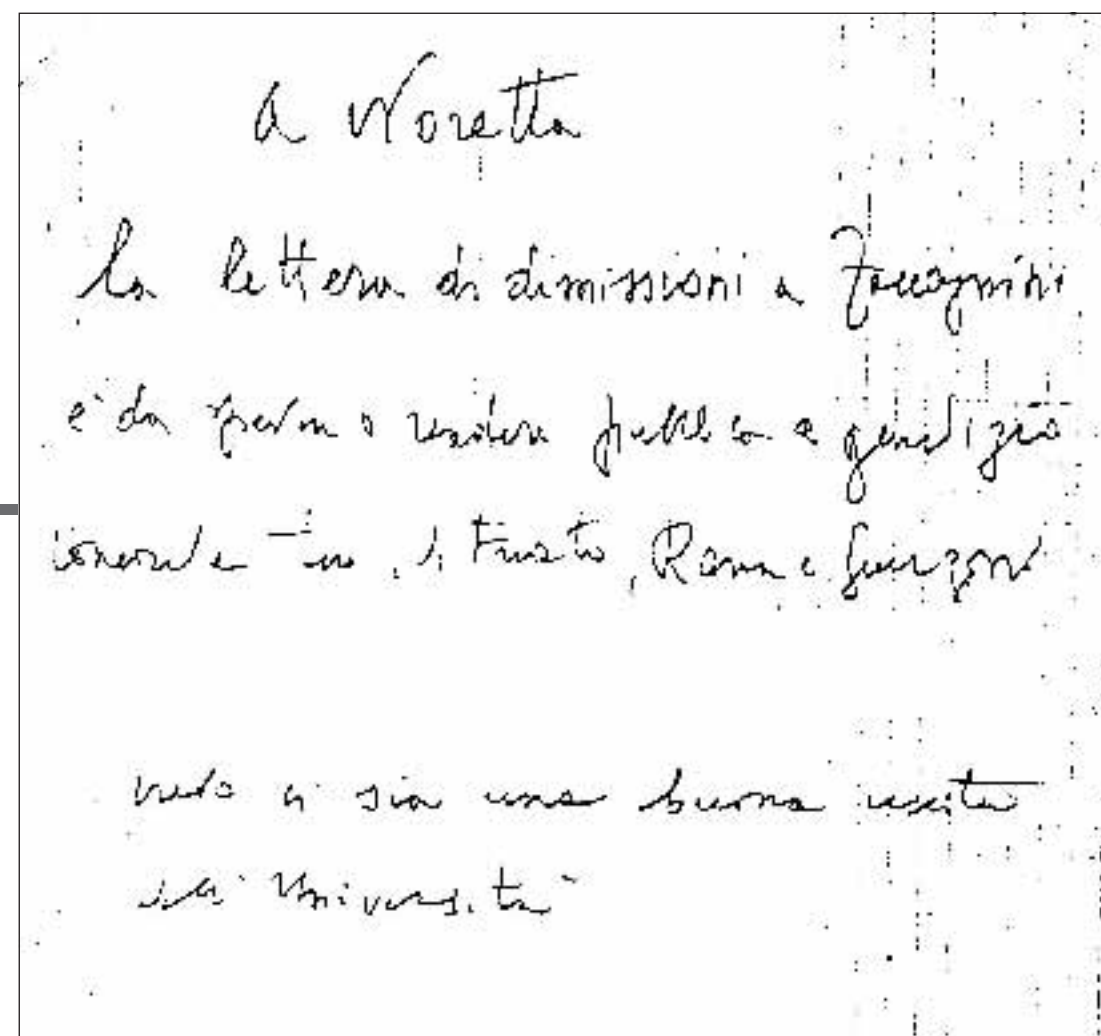 a Noretta
la lettera di dimissioni a Zaccagnini
è da o rendere pubblica a giudizio
concorde tuo, di Freato, Rana e Guerzoni
ci sia una buona uscita
Università